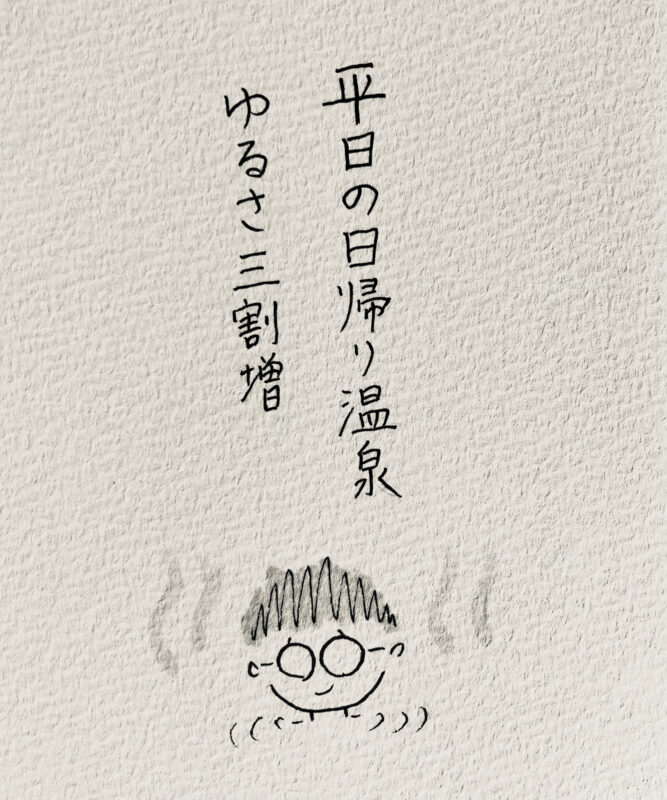 平日の日帰り温泉
ゆるさ三割増